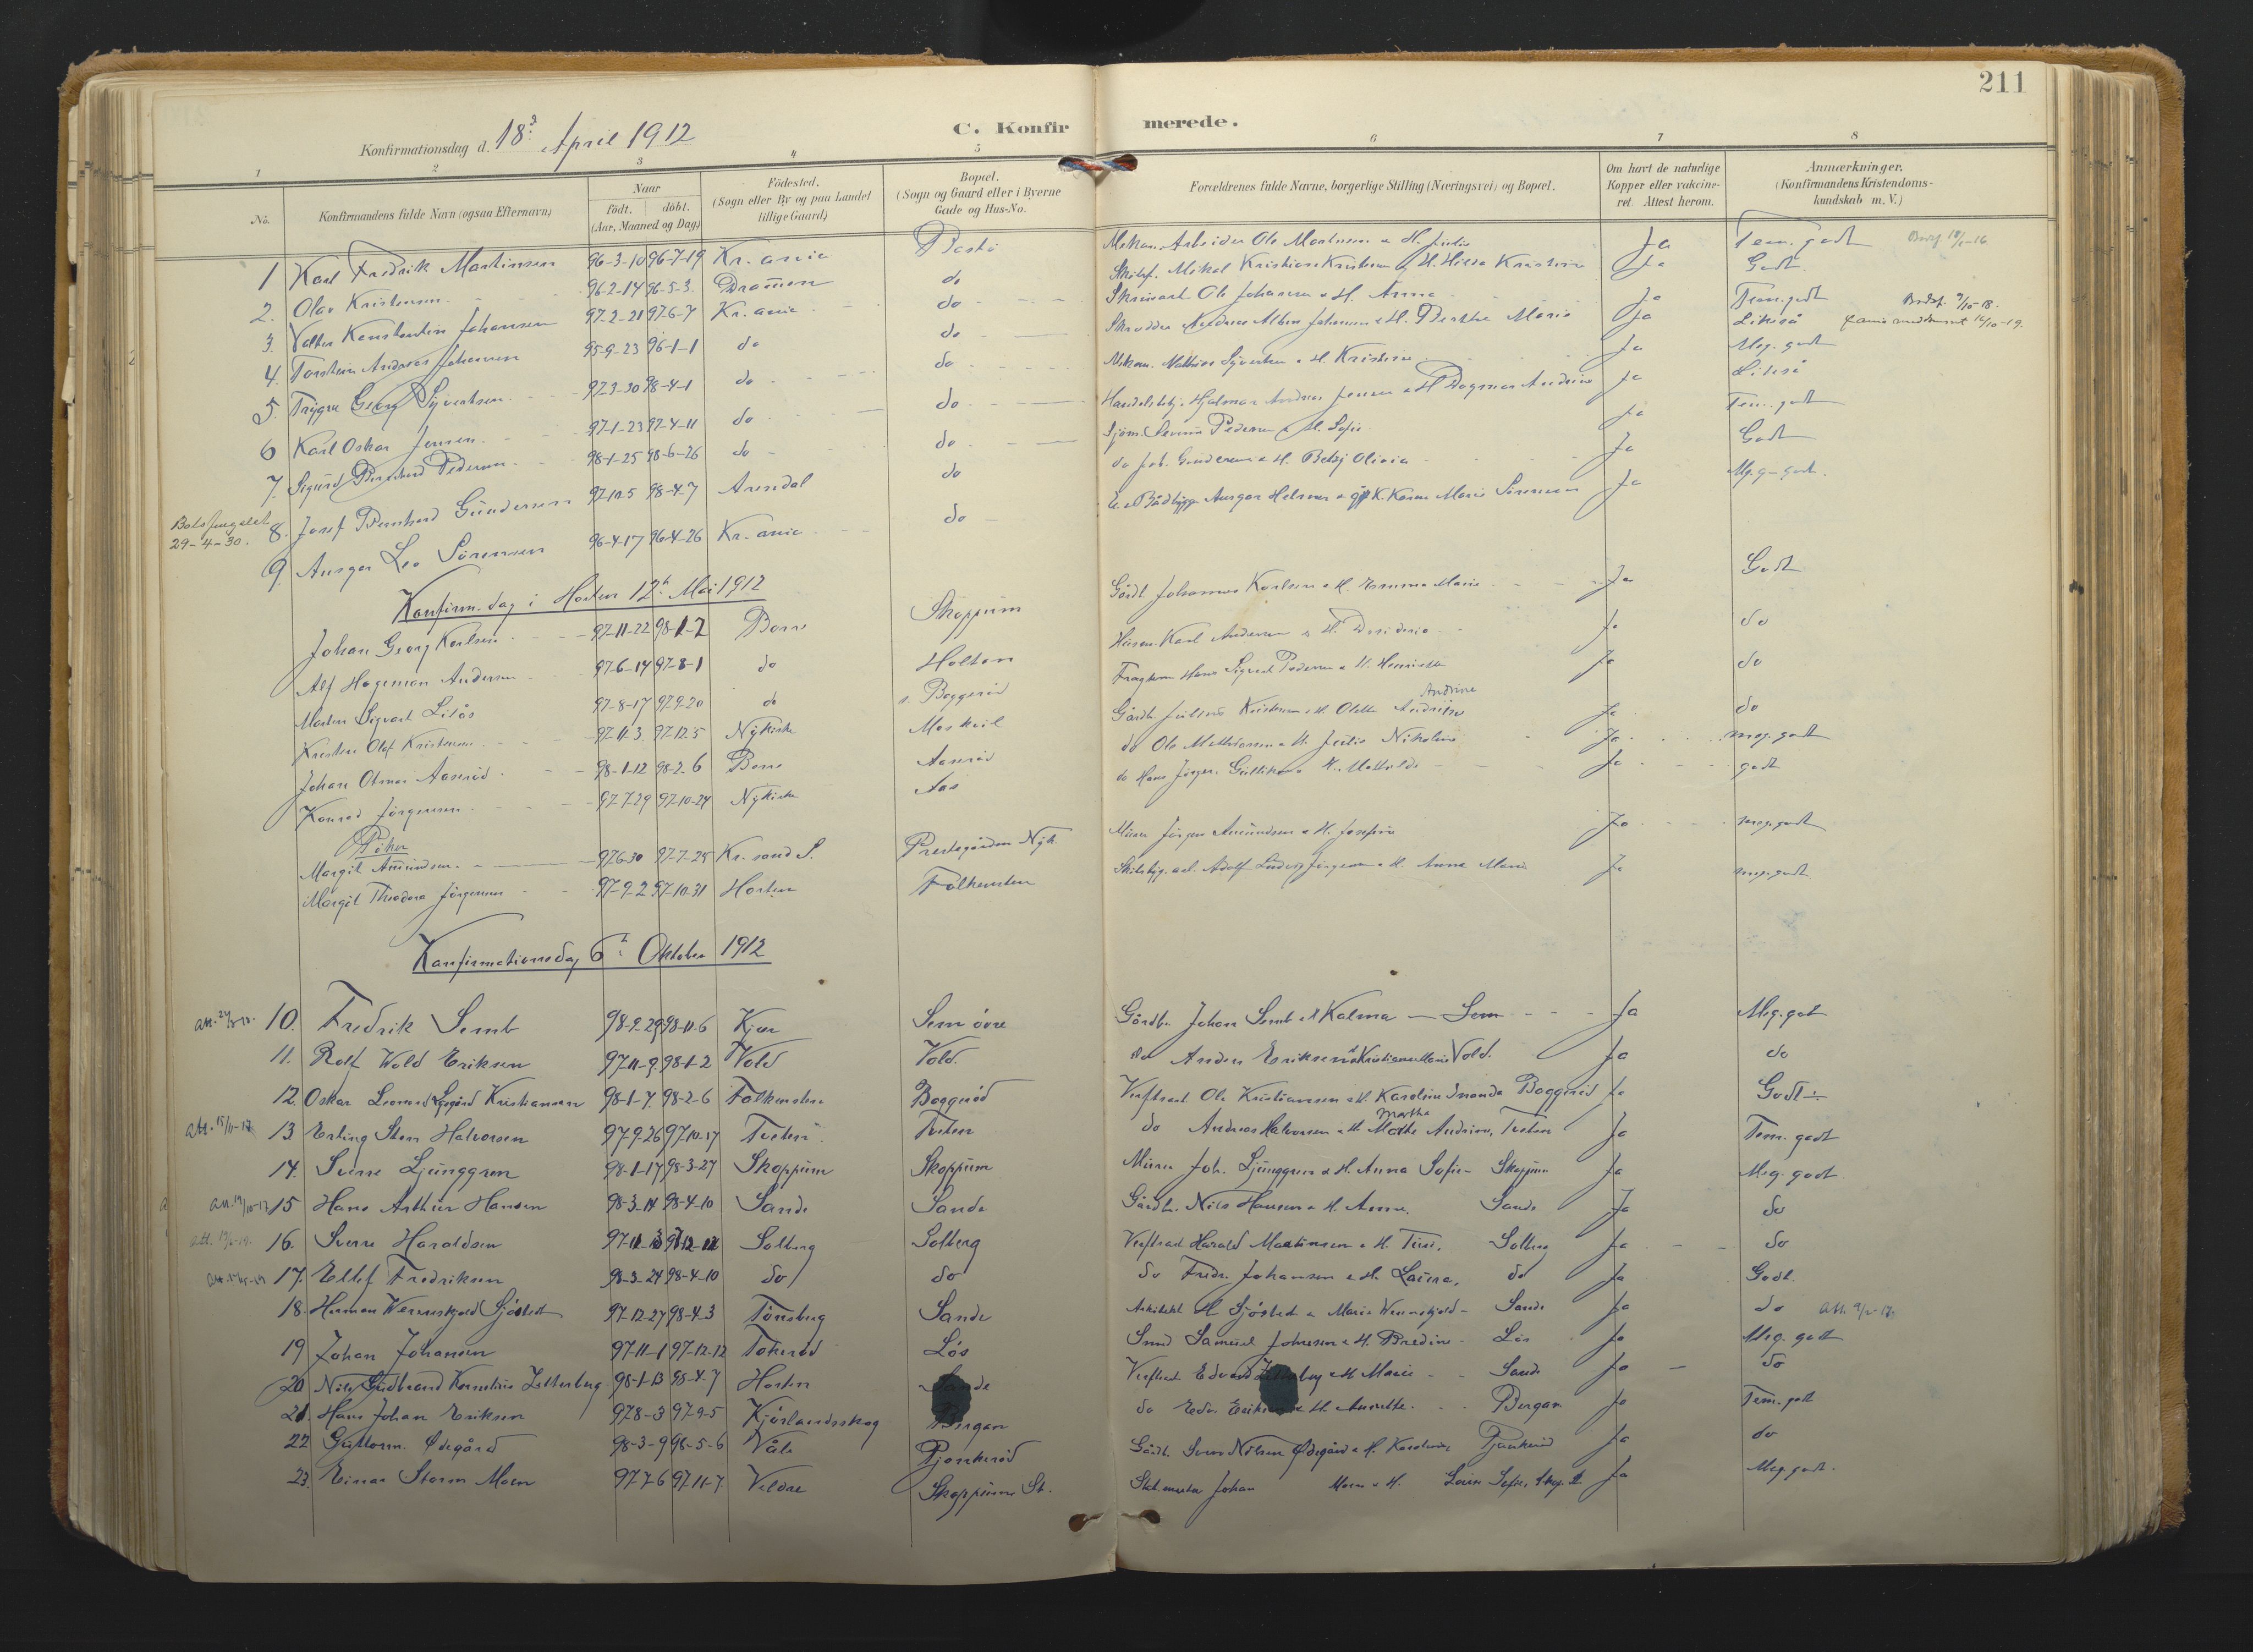 211
C. Konfirmerede.
Konfirmationsdag d. 18. April 1912
1 2 3 4 5 6 7 8
No. Konfirmandens fulde Navn (ogsaa Efternavn) Naar født. døbt. (Aar, Maaned og Dag) Fødested. (Sogn eller By og paa Landet tillige Gaard) Bopæl. (Sogn og Gaard eller i Byerne Gade og Hus-No. Forældrenes fulde Navne, borgerlige Stilling (Næringsvei) og Bopæl. Om havt de naturlige Kopper eller vakcineret. Attest herom. Anmærkninger. (Konfirmandens Kristendomskundskab m. V.)
1 Karl Fredrik Martinsen 96-3-10 96-7-19 Kr.ania Bastö Mekan. Arbeider Ole Martinsen & H. Julie Ja Tem. godt
2. Olav Kristensen 96-2-14 96-5-3 Drammen do Mikal Kristian Kristensen & H. Hilda Kristine Ja Godt
3. Valter Konstantin Johansen 97-2-21 97-6-7 Kr.ania do Ole Johansen & H. Anna Ja Tem. godt
4. Torstein Andreas Johansen 95-9-23 96-1-1 do do Skrædder Andreas Albin Johansen & H. Berthe Marie Ja Likeså
5. Trygve Georg Syvertsen 97-3-30 98-4-1 do do Mekan. Mathias Syvertsen & H. Kristine Ja Meg. godt
6 Karl Oskar Jensen 97-1-23 97-4-11 do do Hjalmar Andreas Jensen & H. Dagmar Andrine Ja Likeså
7. Sigurd Bernhard Pedersen 98-1-25 98-6-26 do do Sjöm. Severin Pedersen & H. Sofie Ja Tem. godt
Botsfengslet 29-4-30. 8. Josef Bernhard Gundersen 97-10-5 98-4-7 Arendal do do Joh. Gundersen & H. Betsy Olivia Ja Godt
9. Ansgar Leo Sörensen 96-4-17 96-4-26 Kr.ania do Ansgar Helmer & Karen Marie Sörensen Ja Meg. godt.
Konfirm. dag i Horten 12. Mai 1912
Johan Georg Karlsen 97-11-22 98-1-2 Borre Skoppum Gårdb. Johannes Karlsen & H. Emma Marie Ja Godt
Alf Hageman Andersen 97-6-14 97-8-1 do Holtan Karl Andersen & H. Ja do
Morten Sigvart Liaös 97-8-17 97-9-20 do Boggeröd Hans Sigvart Pedersen & H. Henriette Ja do
Kristen Olaf Kristensen 97-11-3 97-12-5 Nykirke Moskvil Gårdb. Julius Kristensen & H. Olette Andrine Ja do
Johan Otmar Aaseröd 98-1-12 98-2-6 Borre Aaseröd do Ole Mathiassen & H. Julie Nikoline Ja meg. godt
Konrad Jörgensen 97-7-29 97-10-24 Nykirke Aas do Hans Jörgen Gulliksen & H. Mathilde Ja godt
Piker
Margit Amundsen 97-6-30 97-7-25 Kr.sand S. Prestegården Nyk. Murer Jörgen Amundsen & H. Josefine Ja meg. godt
Margit Theodora Jörgensen 97-9-2 97-10-31 Horten Falkensten Adolf Ludvig Jörgensen & H. Anna Marie Ja meg. godt
Konfirmationsdag 6. Oktober 1912
10. Fredrik Semb 98-9-29 98-11-6 Kjær Sem övre Gårdbr. Johan Semb & Kalma Sem Ja Meg. godt
11. Rolf Wold Eriksen 97-11-9 98-1-2 Vold Vold. do Anders Eriksen & Kristiane Marie Vold. Ja do
12. Oskar Leonard Kristiansen 98-1-7 98-2-6 Falkensten Boggeröd Verftsarb. Ole Kristiansen & H. Karoline Inanda Boggeröd Ja Godt ÷
13. Erling Sten Halvorsen 97-9-26 97-10-17 Tveten Tveten do Andreas Halvorsen & H. Marthe Andrine, Tveten Ja Tem. godt
14. Sverre Ljunggren 98-1-17 98-3-27 Skoppum Skoppum Murer Joh. Ljunggren & H. Anna Sofie Skoppum Ja Meg. godt
15 Hans Arthur Hansen 98-3-14 98-4-10 Sande Sande Gårdb. Nils Hansen & H. Anna. Sande Ja do
16. Sverre Haraldsen Solberg Solberg Verftsarb. Harald Martinsen & H. Solberg Ja do
17. Ellef Fredriksen 98-3-24 98-4-10 do do do Fredr. Johansen & H. Laura. do Ja Godt.
18. Herman Wernerskjold Sjösted 97-12-27 98-4-3 Tönsberg Sande Arkitekt H. Sjösted & Marie Wernerskjold Sande Ja do
19 Johan Johansen 97-11-1 97-12-12 Tokeröd Lös Smed Samuel Johansen & H. Bredine Lös Ja Meg. godt
20 Nils Gudbrand Kornelius Zetterberg 98-1-13 98-4-7 Horten Sande Verftsarb. Edvard & H. Marie Sande Ja do
21. Hans Johan Eriksen 97-8-3 97-9-5 Kjörlandsskog Bergan do Edv. & H. Annette. Bergan Ja Tem. godt
22 Guttorm Ødegård 98-3-9 98-5-6 Våle Pjonkeröd Gårdb. Sven Nilsen Ødegård & H. Ja do
23. Einar Storm Moen 97-7-6 97-11-7 Veldre Skoppum St. Johan Moen & H. Ja Meg. godt.